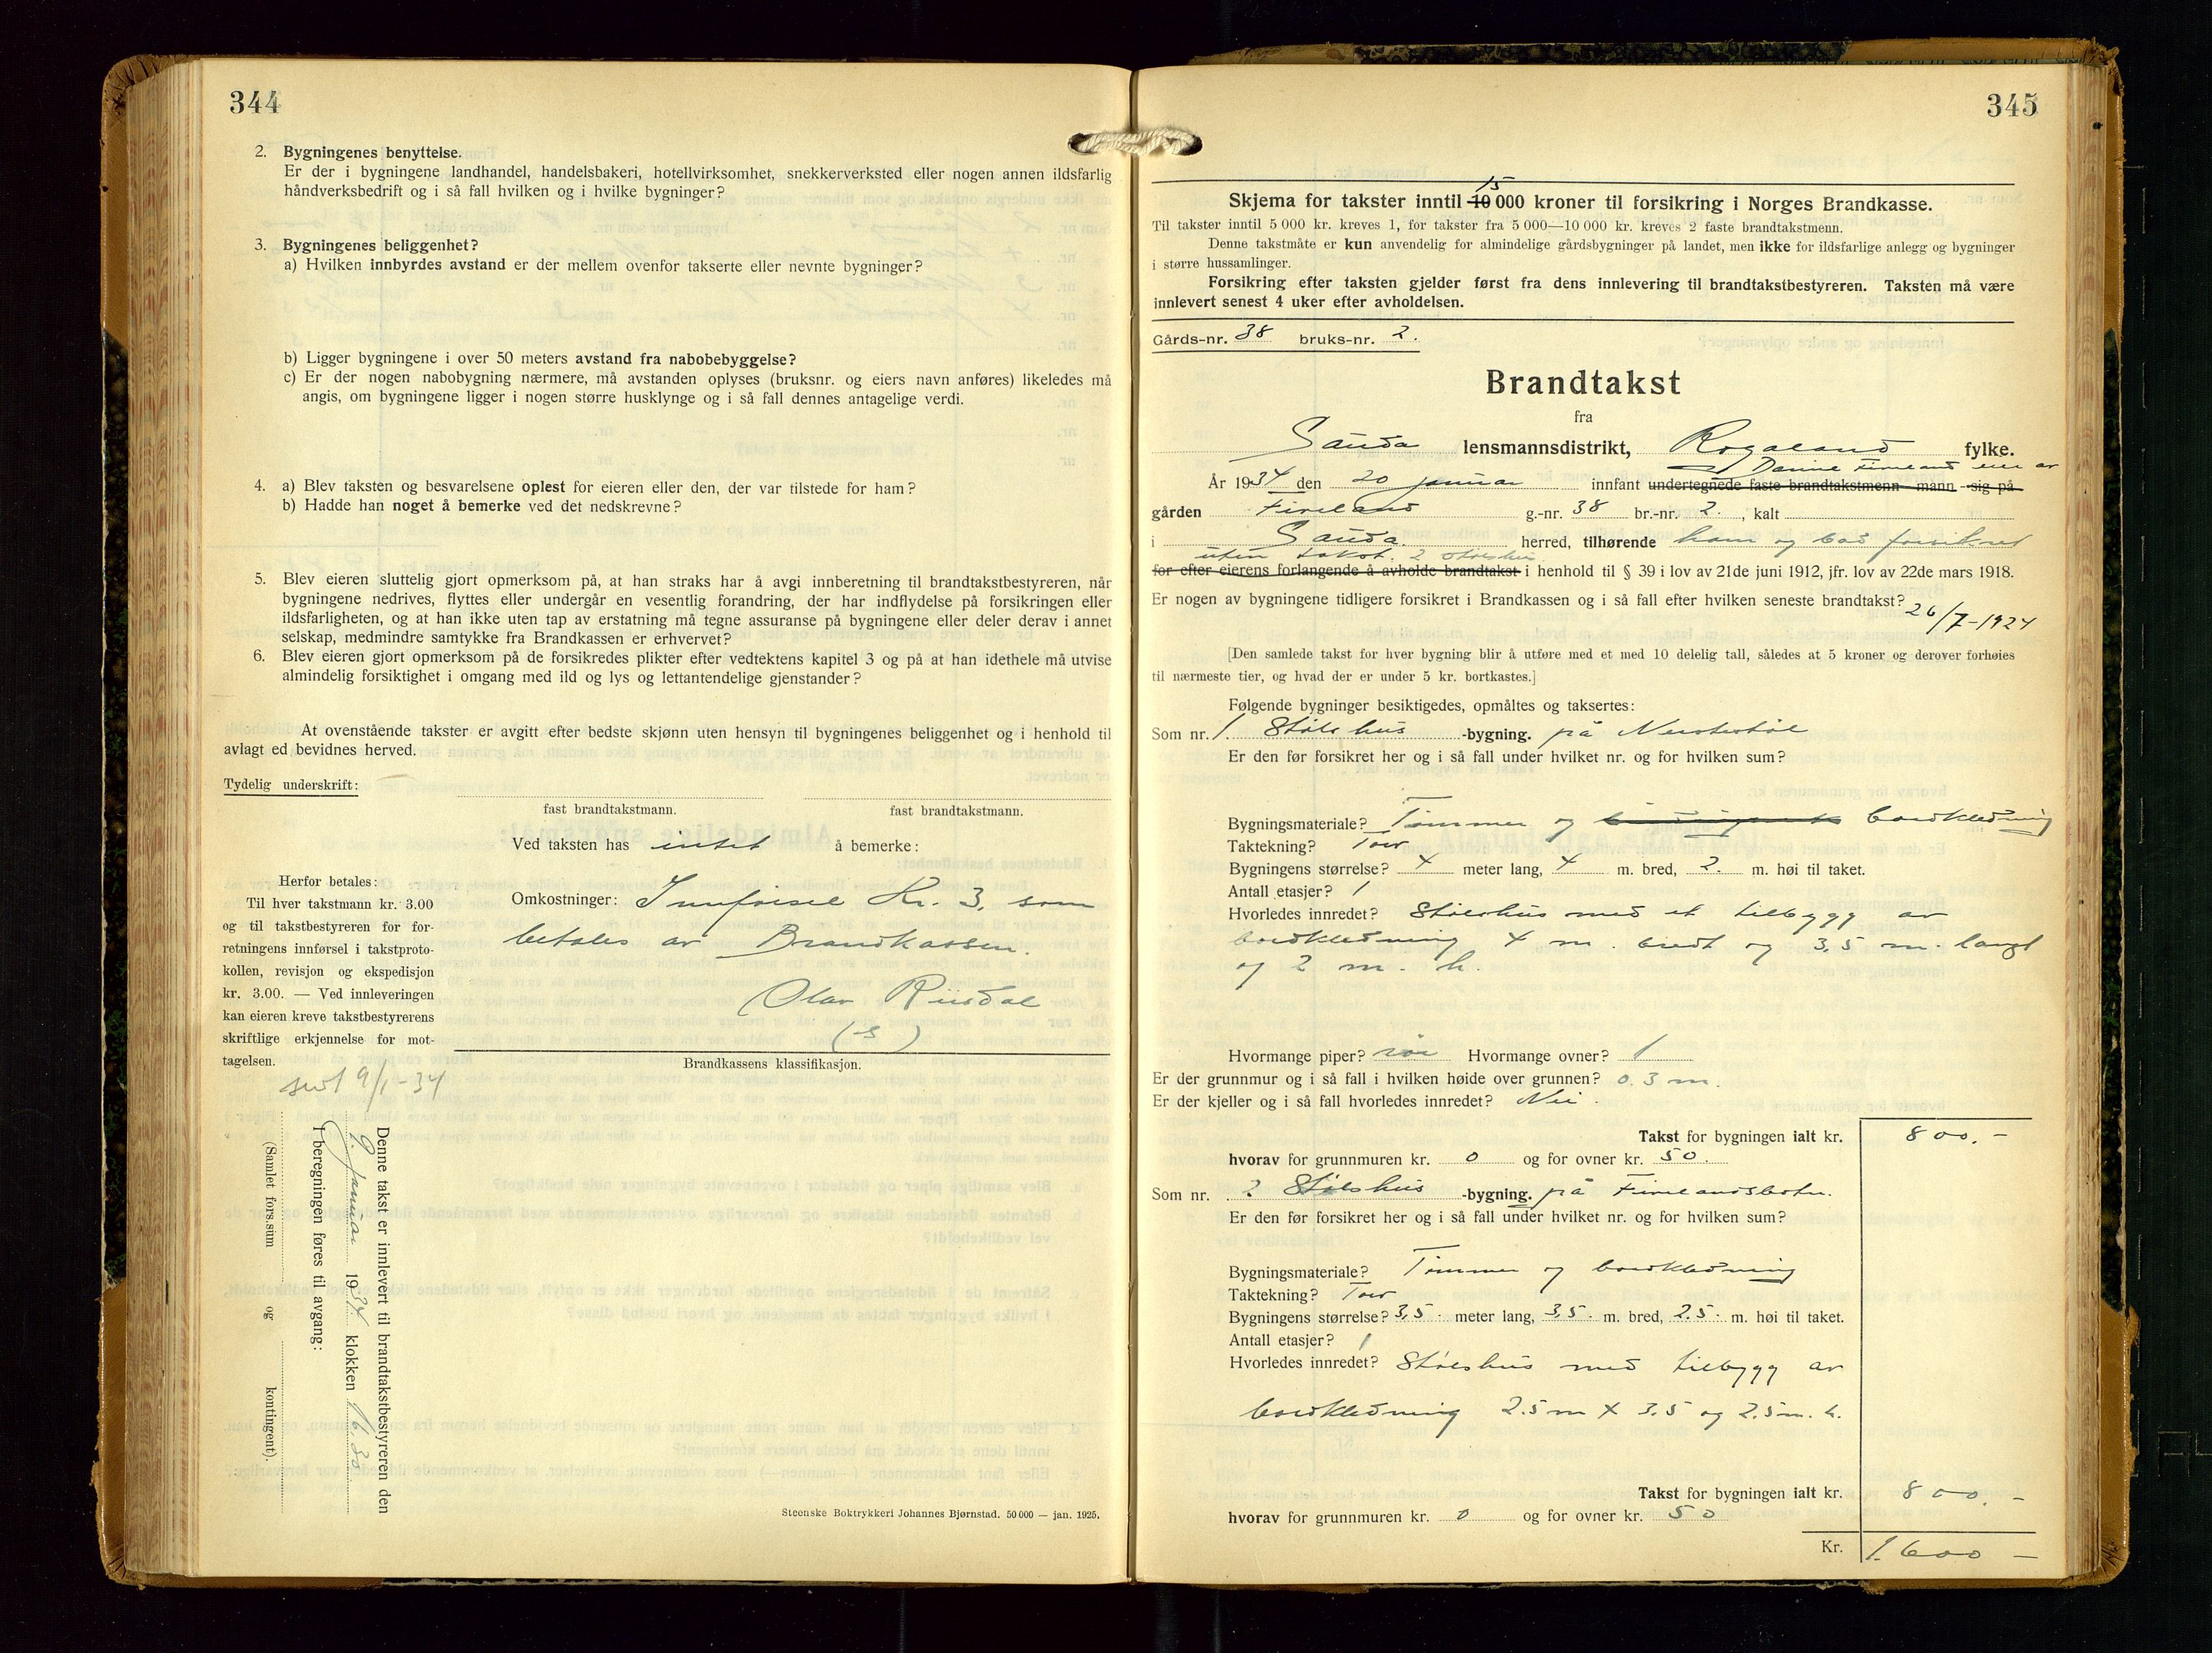 344
2. Bygningenes benyttelse.
Er der i bygningene landhandel, handelsbakeri, hotellvirksomhet, snekkerverksted eller nogen annen ildsfarlig
håndverksbedrift og i så fall hvilken og i hvilke bygninger?
3. Bygningenes beliggenhet?
a) Hvilken innbyrdes avstand er der mellem ovenfor takserte eller nevnte bygninger?
b) Ligger bygningene i over 50 meters avstand fra nabobebyggelse?
c) Er der nogen nabobygning nærmere, må avstanden oplyses (bruksnr. og eiers navn anføres) likeledes må
angis, om bygningene ligger i nogen større husklynge og i så fall dennes antagelige verdi.
4. a) Blev taksten og besvarelsene oplest for eieren eller den, der var tilstede for ham?
b) Hadde han noget å bemerke ved det nedskrevne?
5. Blev eieren sluttelig gjort opmerksom på, at han straks har å avgi innberetning til brandtakstbestyreren, når
bygningene nedrives, flyttes eller undergår en vesentlig forandring, der har indflydelse på forsikringen eller
ildsfarligheten, og at han ikke uten tap av erstatning må tegne assuranse på bygningene eller deler derav i annet
selskap, medmindre samtykke fra Brandkassen er erhvervet?
6. Blev eieren gjort opmerksom på de forsikredes plikter efter vedtektens kapitel 3 og på at han idethele må utvise
almindelig forsiktighet i omgang med ild og lys og lettantendelige gjenstander?
At ovenstående takster er avgitt efter bedste skjønn uten hensyn til bygningenes beliggenhet og i henhold til
avlagt ed bevidnes herved.
Tydelig underskrift:
fast brandtakstmann. fast brandtakstmann.
Ved taksten has intet å bemerke:
Herfor betales:
Til hver takstmann kr. 3.00
og til takstbestyreren for for-
retningens innførsel i takstproto-
kollen, revisjon og ekspedisjon
kr. 3.00. — Ved innleveringen
kan eieren kreve takstbestyrerens
skriftlige erkjennelse for mot-
tagelsen.
Omkostninger: Innførsel Kr. 3, som
betales av Brandkassen.
Olav Riisdal
(s)
Brandkassens klassifikasjon.
9/1-34
Denne takst er innlevert til brandtakstbestyreren den
9. januar 1934 klokken 16.30
I beregningen føres til avgang:
(Samlet fors.sum og kontingent).
Steenske Boktrykkeri Johannes Bjørnstad. 50 000 — jan. 1925.
345
15
Skjema for takster inntil 10 000 kroner til forsikring i Norges Brandkasse.
Til takster inntil 5 000 kr. kreves 1, for takster fra 5 000—10 000 kr. kreves 2 faste brandtakstmenn.
Denne takstmåte er kun anvendelig for almindelige gårdsbygninger på landet, men ikke for ildsfarlige anlegg og bygninger
i større hussamlinger.
Forsikring efter taksten gjelder først fra dens innlevering til brandtakstbestyreren. Taksten må være
innlevert senest 4 uker efter avholdelsen.
Gårds-nr. 38 bruks-nr. 2.
Brandtakst
fra
Sauda lensmannsdistrikt, Rogaland fylke.
eier av
År 1934 den 20 januar innfant undertegnede faste brandtakstmenn mann sig på
gården Fiveland g.-nr. 38 br.-nr. 2., kalt
i Sauda herred, tilhørende ham og bad forsikret
uten takst. 2 støleshus
for efter eierens forlangende å avholde brandtakst i henhold til § 39 i lov av 21de juni 1912, jfr. lov av 22de mars 1918.
Er nogen av bygningene tidligere forsikret i Brandkassen og i så fall efter hvilken seneste brandtakst?
26/7-1924
[Den samlede takst for hver bygning blir å utføre med et med 10 delelig tall, således at 5 kroner og derover forhøies
til nærmeste tier, og hvad der er under 5 kr. bortkastes.]
Følgende bygninger besiktigedes, opmåltes og taksertes:
Som nr. 1. Støleshus -bygning. på
Er den før forsikret her og i så fall under hvilket nr. og for hvilken sum?
Bygningsmateriale? Tømmer og bordkledning
Taktekning? Torv
Bygningens størrelse? 4 meter lang, 4 m. bred, 2. m. høi til taket.
Antall etasjer? 1
Hvorledes innredet? Støleshus med et tilbygg av
bordkledning 4 m. bredt og 3,5 m. langt
og 2 m. h.
Hvormange piper? rør Hvormange ovner? 1
Er der grunnmur og i så fall i hvilken høide over grunnen? 0.3 m.
Er der kjeller og i så fall hvorledes innredet? Nei.
Takst for bygningen ialt kr. 800.-
hvorav for grunnmuren kr. 0 og for ovner kr. 50.
Som nr. 2 Støleshus -bygning. på Fivelandsbotn.
Er den før forsikret her og i så fall under hvilket nr. og for hvilken sum?
Bygningsmateriale? Tømmer og bordkledning
Taktekning? Torv
Bygningens størrelse? 3,5. meter lang, 3,5. m. bred, 2.5. m. høi til taket.
Antall etasjer? 1
Hvorledes innredet? Støleshus med tilbygg av
bordkledning 2.5 m x 3.5 og 2.5 m. h.
Takst for bygningen ialt kr. 800.-
hvorav for grunnmuren kr. 0 og for ovner kr. 50
Kr. 1.600 -